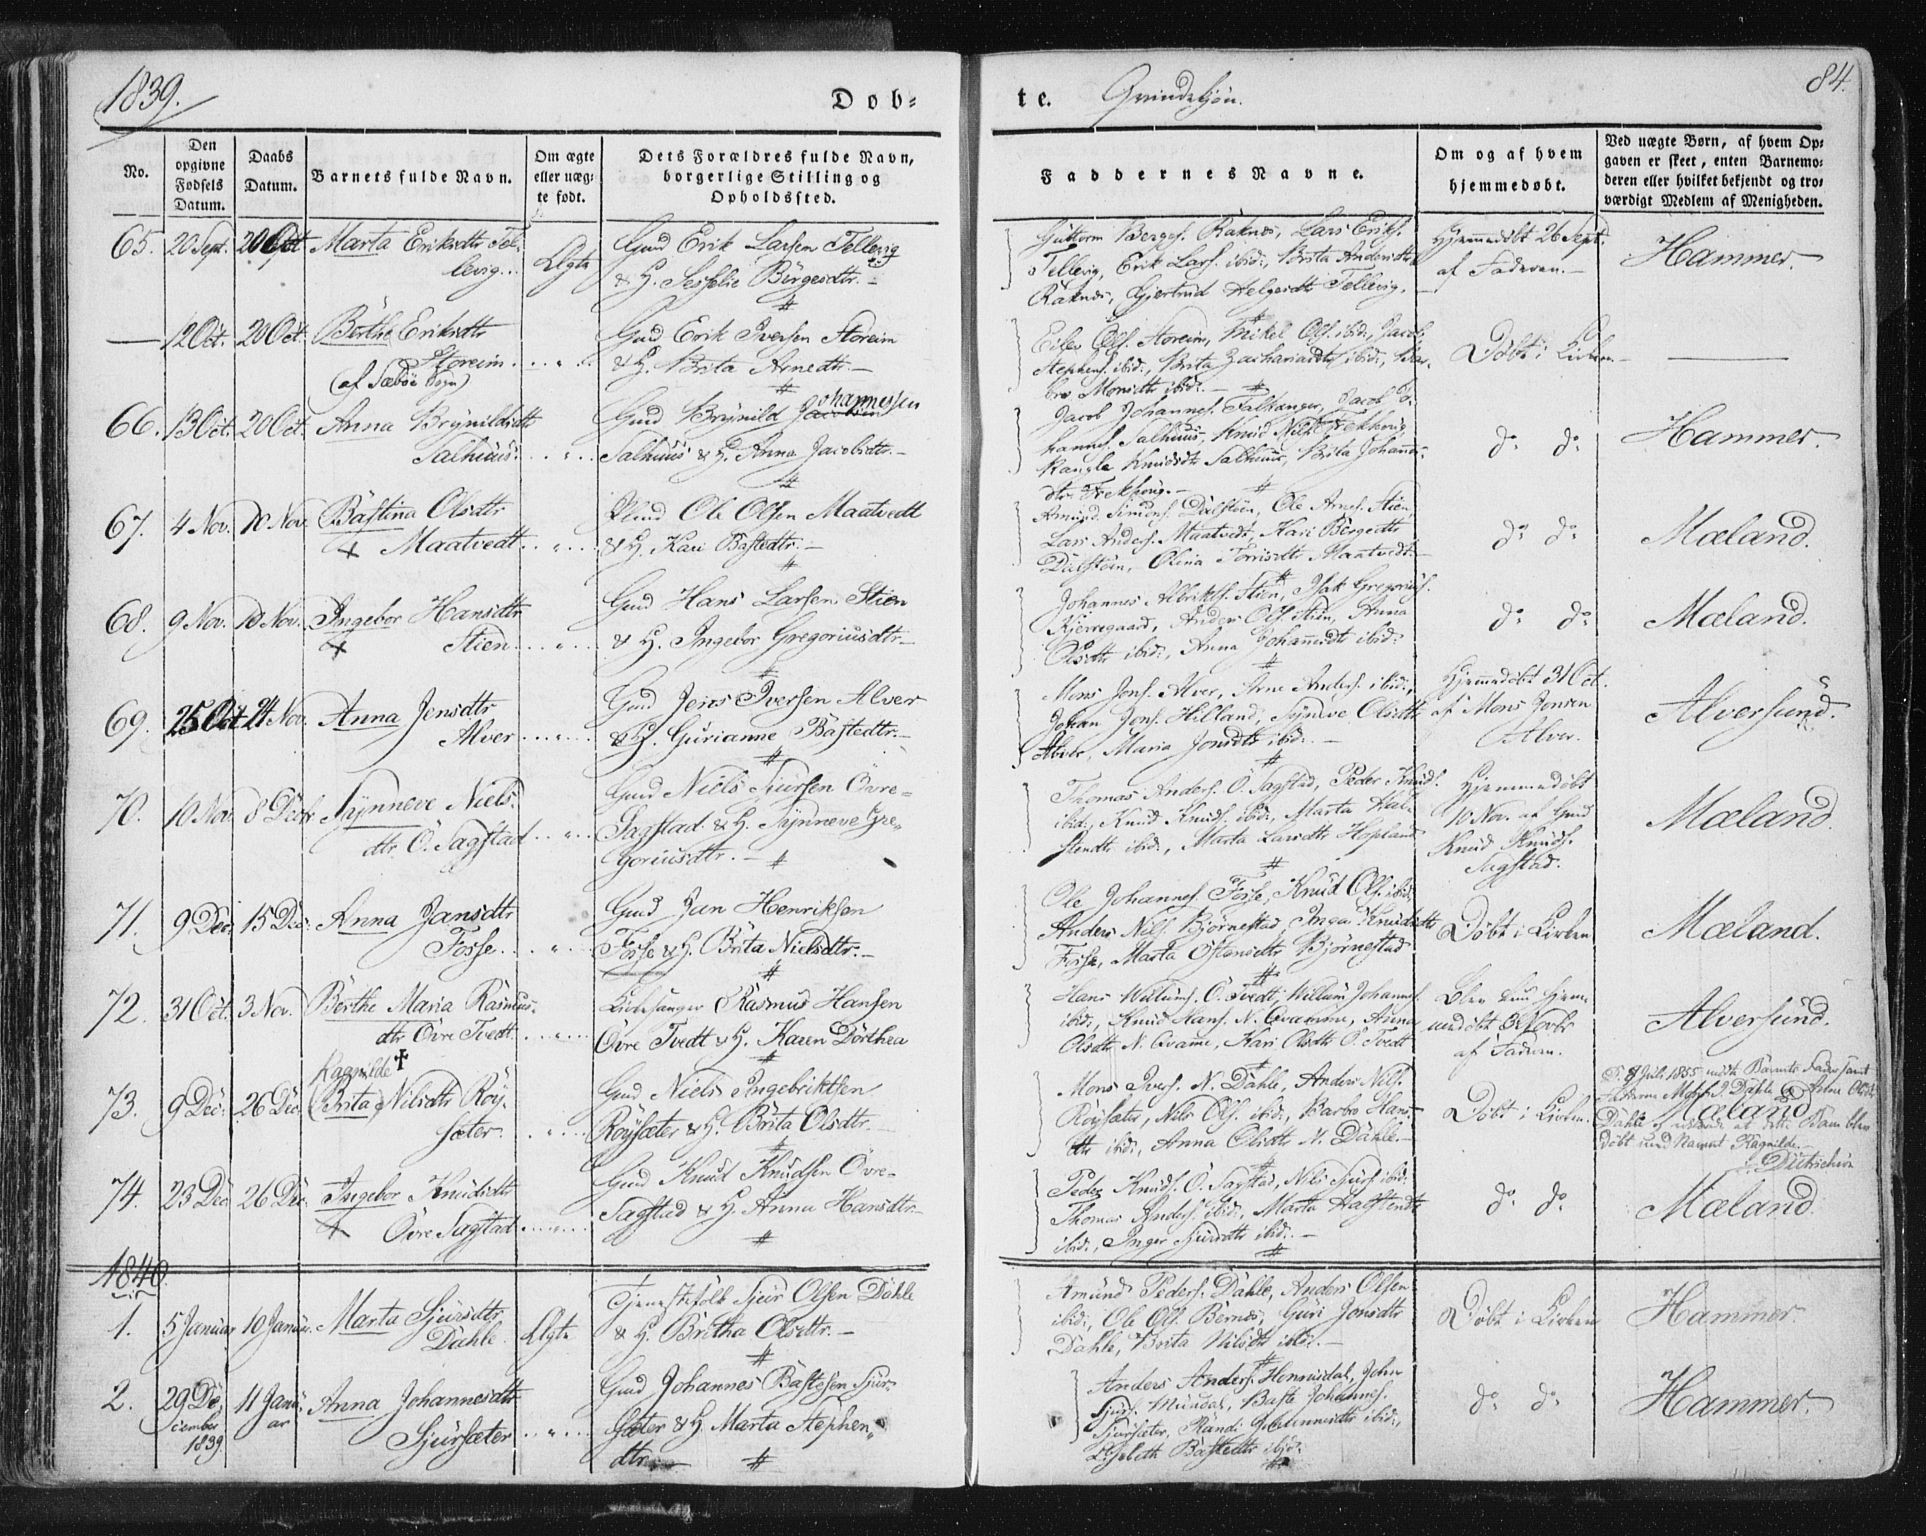 1839.
Döb-
te. Qvindekjön.
84.
No.
Den opgivne Fødsels Datum.
Daabs Datum.
Barnets fulde Navn.
Om ægte eller uægte født.
Dets Forældres fulde Navn, borgerlige Stilling og Opholdssted.
Faddernes Navne.
Om og af hvem hjemmedøbt.
Ved uægte Børn, af hvem Opgaven er skeet, enten Barnemoderen eller hvilket bekjendt og troværdigt Medlem af Menigheden.
65. 20 Sept. 20 Oct. Marta Eriksdtr Tel-
levig... Ægte
Gmd Erik Larsen Tellevig
& H. Sesselie Börgesdtr. -
Guttorm Berges. Raknæs, Lars Eriks.
Tellevig, Erik Lars. ibid:, Brita Andersdtr
Raknæs, Gjertrud Helgesdtr Tellevig.
Hjemmedöbt 26 Sept.
af Faderen. -
Hammer.
— 12 Oct. 20 Oct. Börthe Eriksdtr
Storeim
(af Sæböe Sogn)
Gmd Erik Iversen Storeim
& H. Brita Arnedtr. -
Eilev Ols. Storeim, Mikel Ols. ibid:, Jacob
Stephens. ibid:, Brita Zachariasdtr ibid:, Bar-
bro Monsdtr ibid: -
Döbt i Kirken -
66. 13 Oct. 20 Oct. Anna Brynildsdtr
Salhuus.
Gmd Brynild Johannessen
Salhuus & H. Anna Jacobsdtr. -
Jacob Johannes. Salhuus, Jacob Jo-
hannes. Salhuus, Knud Nils. Frekhoug
Rangle Knudsdtr Salhuus, Brita Johannes-
dtr Frekhoug. -
do do
Hammer.
67. 4 Nov. 10 Nov. Bastina Olsdtr
Maatvedt
Plmd Ole Olsen Maatvedt
& H. Kari Bastedtr. -
Amund Simons. Dalstöen, Ole Arnes. Stien,
Lars Anders. Maatvedt, Kari Börgedtr
Dalstöen, Olina Torrisdtr Maatvedt -
do do
Mæland.
68. 9 Nov. 10 Nov. Ingebor Hansdtr
Stien
Gmd Hans Larsen Stien
& H. Ingebor Gregoriusdtr -
Johannes Albrikts. Stien, Isak Gregorius.
Kjerregaard, Anders Ols. Stien, Anna
Olsdtr ibid:, Anna Johannesdtr ibid:
do do
Mæland.
69. 25 Oct 24 Nov. Anna Jensdtr
Alver
Gmd Jens Iversen Alver
& H. Gurianne Bastedtr. -
Mons Jons. Alver, Arne Anders. ibid:,
Johan Jons. Hilland, Synneve Olsdtr
Alver, Maria Jonsdtr ibid: -
Hjemmedöbt 31 Oct.
af Mons Jonsen
Alver.
Alversund.
70. 10 Nov. 8 Decbr Synneve Niels-
dtr Ö. Sagstad
Gmd Niels Sjursen Övre-
Sagstad & H. Synneve Gre-
goriusdtr. -
Thomas Anders. Ö. Sagstad, Peder Knuds.
ibid:, Knud Knuds. ibid:, Marta Hal-
stendtr ibid:, Marta Larsdtr Hopland
Hjemmedöbt
10 Nov. af Gmd
Knud Knuds.
Sagstad.
Mæland.
71. 9 Dec. 15 Dec: Anna Jansdtr
Fosse
Gmd Jan Henriksen
Fosse & H. Brita Nielsdtr. -
Ole Johannes. Fosse, Knud Ols. ibid:,
Anders Nils. Björnestad, Inga Knudsdtr
Fosse, Marta Ostensdtr Björnestad
Döbt i Kirken
Mæland.
72. 31 Oct. 3 Nov. Börthe Maria Rasmus-
dtr Övre Tvedt
Kirkesanger Rasmus Hansen
Övre Tvedt & H. Karen Dorthea
Hans Willums. Ö. Tvedt, Willum Johannes.
ibid:, Knud Hans. N. Qvamme, Anna
Olsdtr N. Qvamme, Kari Olsdtr Ö. Tvedt
Blev kun hjem-
medöbt 3 Novbr
af Faderen.
Alversund.
73. 9 Dec: 26 Dec. Ragnilde
(Brita) Nilsdtr Röy-
sæter.
Gmd Niels Ingebriktsen
Röysæter & H. Brita Olsdtr. -
Mons Ivers. N. Dahle, Anders Nils.
Röysæter, Nils Ols. ibid:, Barbro Hans-
dtr ibid:, Anna Olsdtr N. Dahle. -
Döbt i Kirken.
D. 8 Juli 1855 mødte Barnets Fader samt
Fadderne Mons I. Dahle og Anna Olsdtr
Mæland
Dahle og udsagde at dette Barn blev
döbt med Navnet Ragnilde. -
Ditrichson
74. 23 Dec 26 Dec. Ingebor Knudsdtr
Övre Sagstad
Gmd Knud Knudsen Övre-
Sagstad & H. Anna Hansdtr -
Peder Knuds. Ö. Sagstad, Nils Sjurs. ibid:
Thomas Anders. ibid:, Marta Halstendtr
ibid:, Inger Sjursdtr ibid: -
do do
Mæland
1840.
1. 5 Januar 10 Januar. Marta Sjursdtr
Dahle. Ægte
Tjenestefolk Sjur Olsen Dahle
& H. Britha Olsdtr. -
Amund Peders. Dahle, Anders Olsen
ibid:, Ole Ols. Bernæs, Guri Jonsdtr
Dahle, Brita Nilsdtr ibid: -
Döbt i Kirken
Hammer.
2. 29 De-
cember
1839.
11 Janu-
ar
Anna Johannesdtr
Sjursæter
Gmd Johannes Bastesen Sjur-
sæter & H. Marta Stephen-
dtr. -
Anders Anders. Henriksdal, John
Sjurs. Mundal, Baste Johannes.
Sjursæter, Randi Johannesdtr ibid:,
Lisbeth Bastedtr ibid:
do do
Hammer.